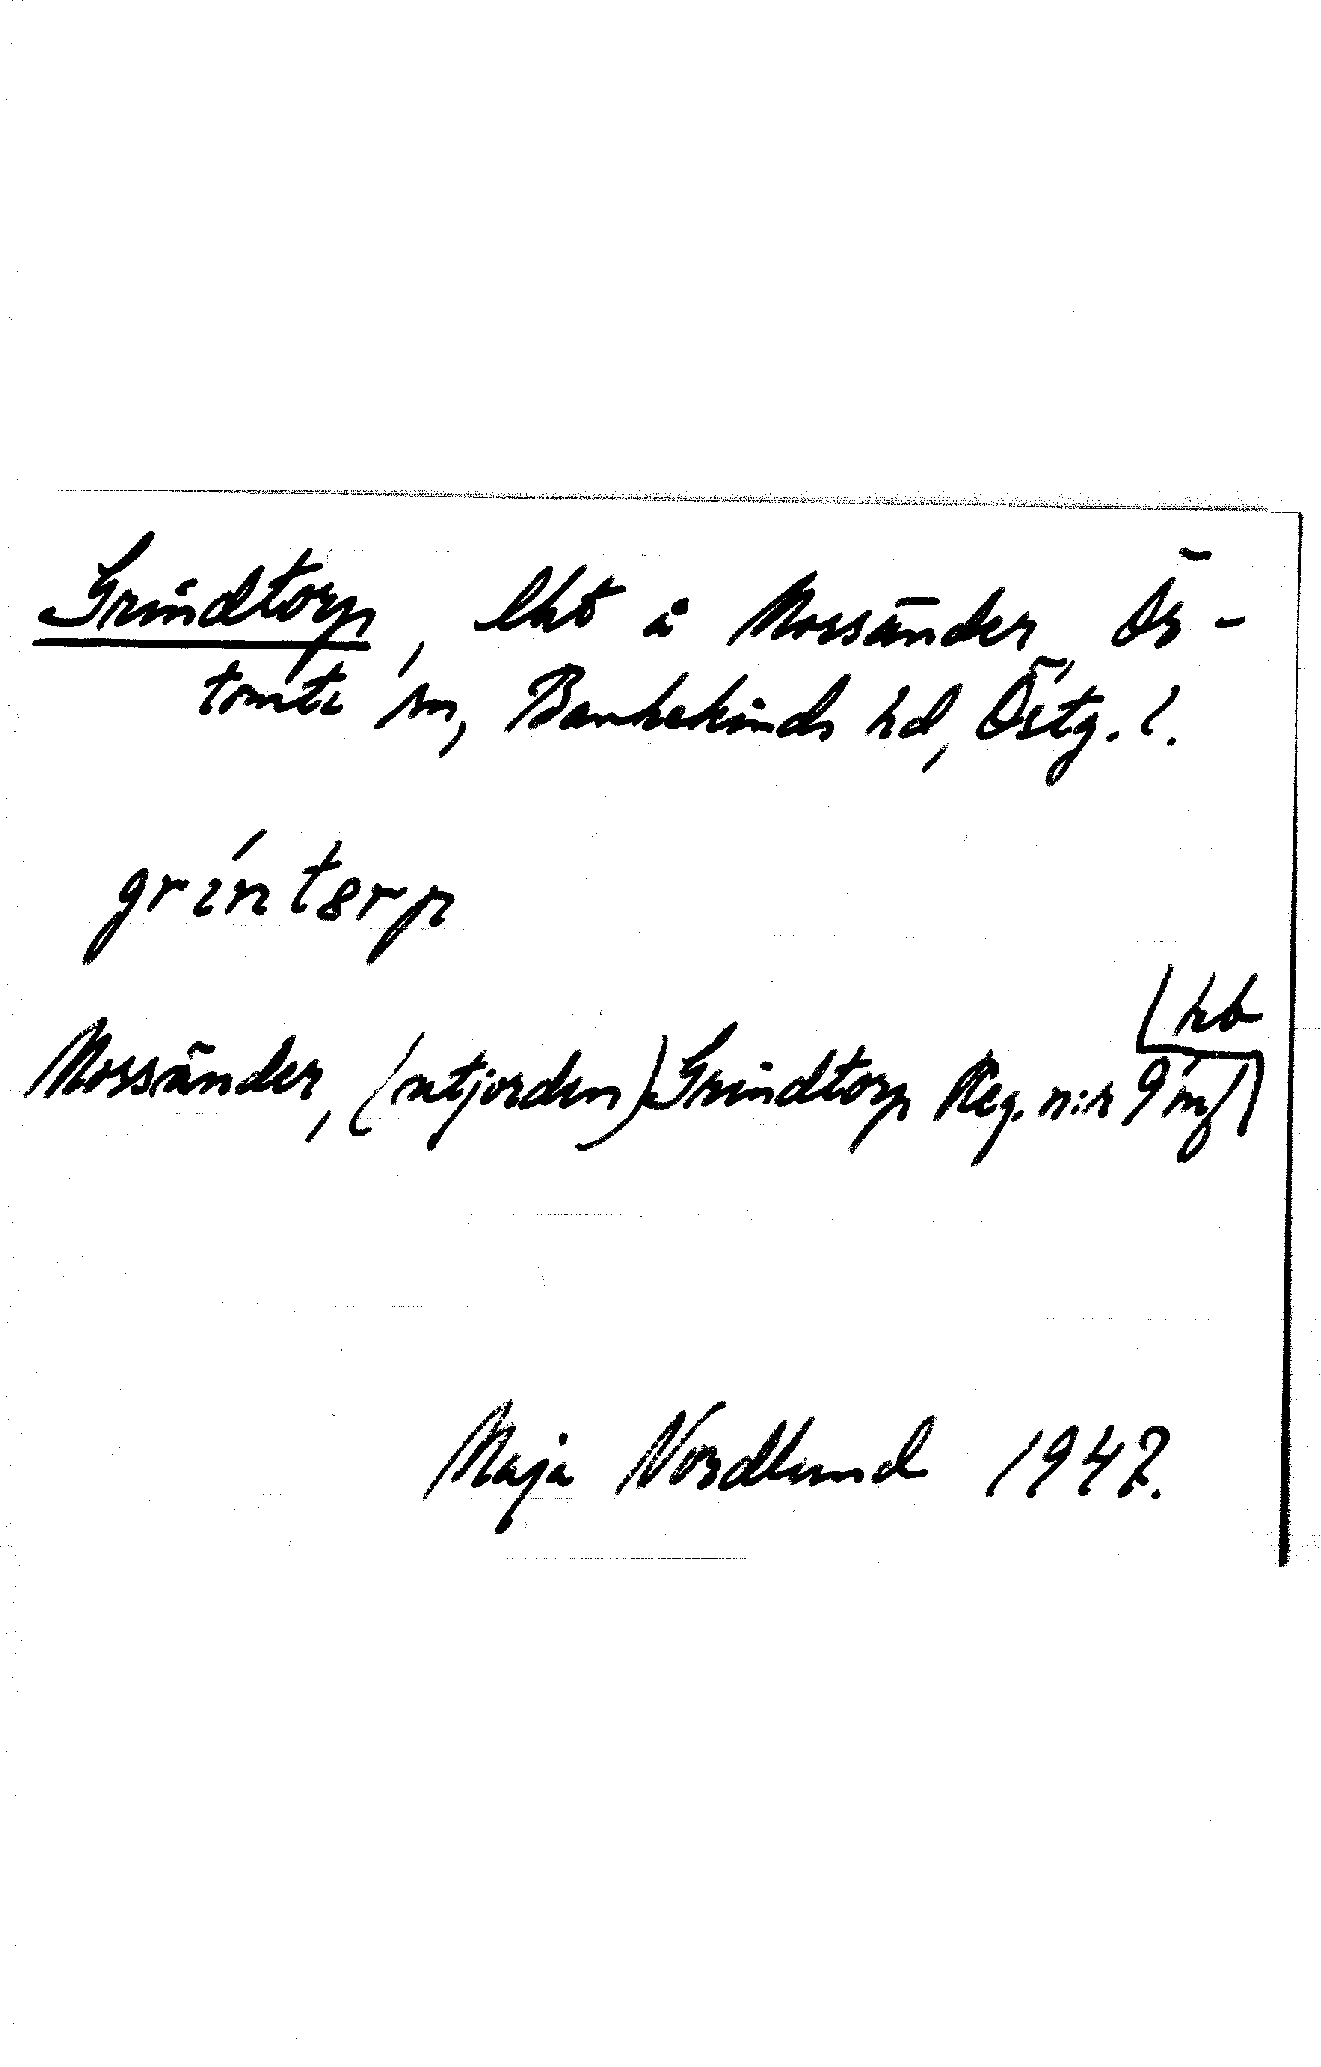 Grindtorp, lht å Mossänder Ös-
tomta sn, Bankekinds hd, Östg. l.
gríntørp
Mossänder, (utjorden) Grindtorp Reg. n:r 9
Maja Nordlund 1947.